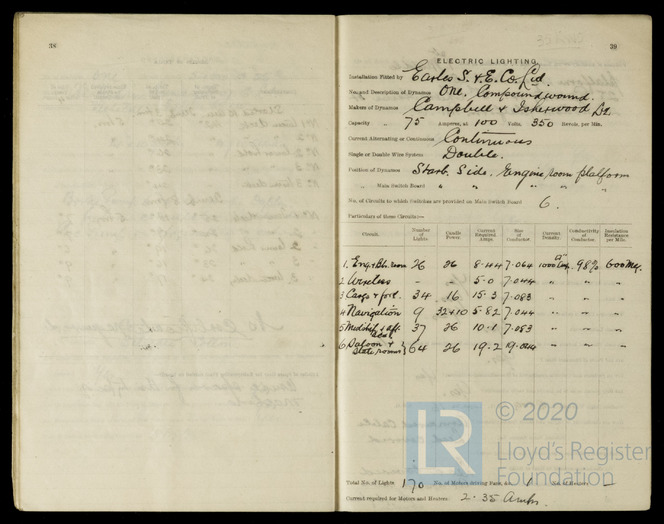 38
39
ELECTRIC LIGHTING.
Installation Fitted by Earles S. & E. Co. Ltd.
No. and Description of Dynamos One. Compound wound.
Makers of Dynamos Campbell & Isherwood Ld.
Capacity 75 Amperes, at 100 Volts, 350 Revols. per Min.
Current Alternating or Continuous Continuous
Single or Double Wire System Double.
Position of Dynamos Starb. Side. Engine room platform
" Main Switch Board " " " " "
No. of Circuits to which Switches are provided on Main Switch Board 6.
Particulars of these Circuits:—
Circuit. Number of Lights. Candle Power. Current Required Amps. Size of Conductor. Current Density. Conductivity of Conductor. Insulation Resistance per Mile.
1. Eng & Blr. room 26 26 8.44 7.064 1000 98% 600 Meg.
2 Wireless - - 5.0 7.044 " " "
3 Cargo & forl. 34 16 15.3 7.083 " " "
4 Navigation 9 32 & 10 5.82 7.044 " " "
5 Midship & aft. 37 26 10.1 7.083 " " "
6 Saloon & State rooms } 64 26 19.2 19.044 " " "
Total No. of Lights 170 No. of Motors driving Fans, &c. 1 No. of Heaters -
Current required for Motors and Heaters 2.35 Amps.
LR
© 2020
Lloyd's Register
Foundation